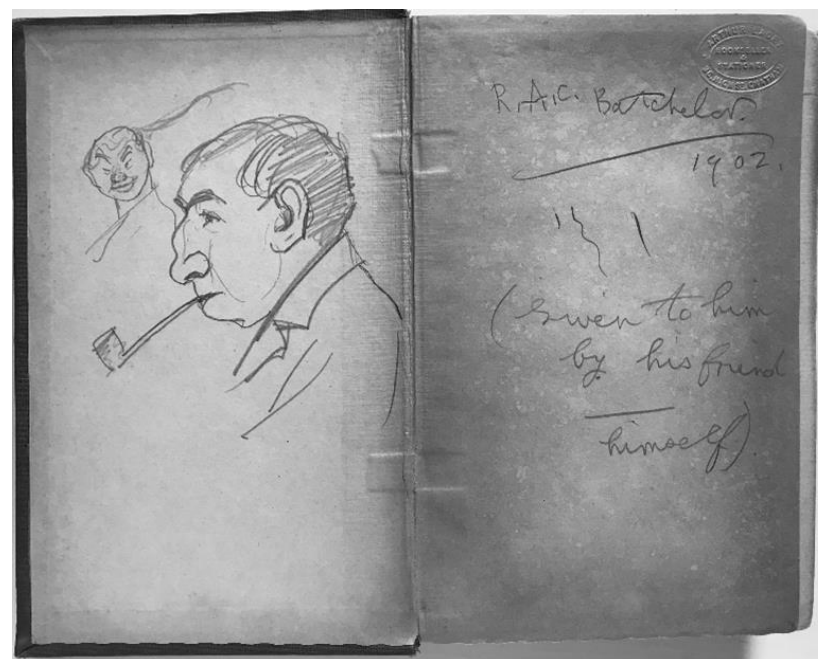 ARTHUR
BOOKSELLER
&
STATIONER
R.A.C. Batchelor.
1902.
(Given to him
by his friend
himself)